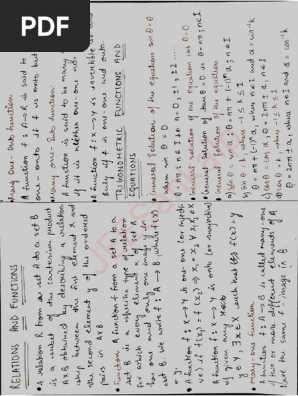 PDF
RELATIONS AND FUNCTIONS
• A relation R from a set A to a set B
is a subset of the cartesian product
A×B obtained by describing a relation
ship between the first element x and
the second element y of the ordered
pairs in A×B.
• Function: A function from a set A to a
set B is a specific type of relation
for which every element of set A
has one and only one image in
set B. We write f: A→B, where f(x)
= y.
• A function f: X→Y is one-one (or injecti
ve) if f(x₁) = f(x₂) ⇒ x₁ = x₂ ∀ x₁, x₂ ∈ X
• A function f: X→Y is onto (or surjective)
if given any
y ∈ Y, ∃ x ∈ X such that f(x) = y
• Many-one function:
A function f: A→B is called many one
if two or more different elements of A
have the same f-image in B.
• Many One-Onto function:
A function f: A→B is said to
one-onto if f is onto but
• Many One Into function:
A function is said to be many
if it is neither one-one nor
• A function f: X→Y is invertible
only if f is one-one and onto.
TRIGONOMETRIC FUNCTIONS AND
EQUATIONS
General Solution of the equation sin θ = 0
when sin θ = 0
θ = nπ : n ∈ I i.e. n = 0, ±1, ±2 ......
• General solution of the equation cos θ = 0
• General solution of tan θ = 0 is θ = nπ; n ∈ I
• General Solution of the equation
a) sin θ = sin α : θ = nπ + (-1)ⁿα, n ∈ I
b) sin θ = k, where -1 ≤ k ≤ 1
θ = nπ + (-1)ⁿα, where n ∈ I and α = sin⁻¹k
c) cos θ = cos α : θ = 2nπ ± α, n ∈ I
d) cos θ = k, where -1 ≤ k ≤ 1
θ = 2nπ ± α, where n ∈ I and α = cos⁻¹k